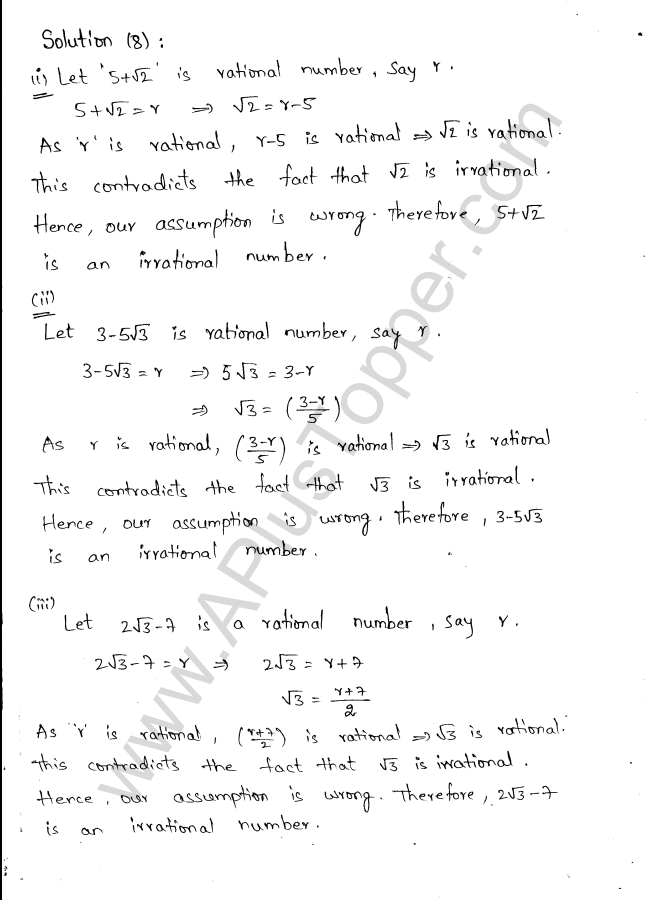 Solution (8) :
(i) Let '5+√2' is rational number, say r.
5+√2 = r ⇒ √2 = r-5
As 'r' is rational, r-5 is rational ⇒ √2 is rational.
This contradicts the fact that √2 is irrational.
Hence, our assumption is wrong. Therefore, 5+√2
is an irrational number.
(ii)
Let 3-5√3 is rational number, say r.
3-5√3 = r ⇒ 5√3 = 3-r
⇒ √3 = (3-r/5)
As r is rational, (3-r/5) is rational ⇒ √3 is rational
This contradicts the fact that √3 is irrational.
Hence, our assumption is wrong. Therefore, 3-5√3
is an irrational number.
(iii)
Let 2√3-7 is a rational number, say r.
2√3-7 = r ⇒ 2√3 = r+7
√3 = r+7/2
As 'r' is rational, (r+7/2) is rational ⇒ √3 is rational.
This contradicts the fact that √3 is irrational.
Hence, our assumption is wrong. Therefore, 2√3-7
is an irrational number.
www.APlusTopper.com